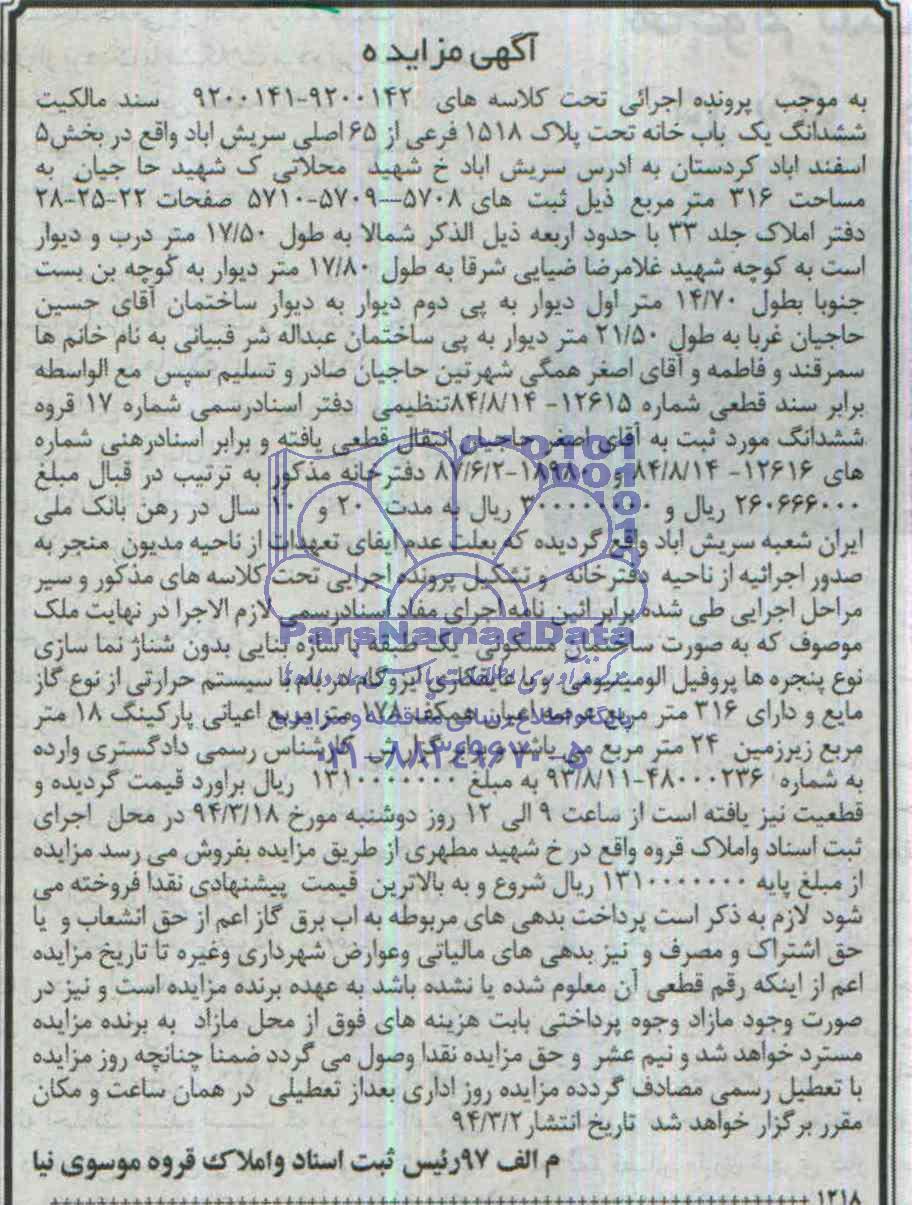 آگهی مزایده
به موجب پرونده اجرائی تحت کلاسه های ۹۲۰۰۱۴۲-۹۲۰۰۱۴۱ سند مالکیت
ششدانگ یک باب خانه تحت پلاک ۱۵۱۸ فرعی از ۶۵ اصلی سریش اباد واقع در بخش۵
اسفند اباد کردستان به ادرس سریش اباد خ شهید محلاتی ک شهید حا جیان به
مساحت ۳۱۶ متر مربع ذیل ثبت های ۵۷۰۸--۵۷۰۹-۵۷۱۰ صفحات ۲۲-۲۵-۲۸
دفتر املاک جلد ۳۳ با حدود اربعه ذیل الذکر شمالا به طول ۱۷/۵۰ متر درب و دیوار
است به کوچه شهید غلامرضا ضیایی شرقا به طول ۱۷/۸۰ متر دیوار به کوچه بن بست
جنوبا بطول ۱۴/۷۰ متر اول دیوار به پی دوم دیوار به دیوار ساختمان آقای حسین
حاجیان غربا به طول ۲۱/۵۰ متر دیوار به پی ساختمان عبداله شر قبیانی به نام خانم ها
سمرقند و فاطمه و آقای اصغر همگی شهرتین حاجیان صادر و تسلیم سپس مع الواسطه
برابر سند قطعی شماره ۱۲۶۱۵- ۸۴/۸/۱۴تنظیمی دفتر اسنادرسمی شماره ۱۷ قروه
ششدانگ مورد ثبت به آقای اصغر حاجیان انتقال قطعی یافته و برابر اسنادرهنی شماره
های ۱۲۶۱۶- ۸۴/۸/۱۴ و ۱۸۹۸۰-۸۷/۶/۲ دفترخانه مذکور به ترتیب در قبال مبلغ
۲۶۰۶۶۶۰۰۰ ریال و ۳۰۰۰۰۰۰۰۰ ریال به مدت ۲۰ و ۱۰ سال در رهن بانک ملی
ایران شعبه سریش اباد واقع گردیده که بعلت عدم ایفای تعهدات از ناحیه مدیون منجر به
صدور اجرائیه از ناحیه دفترخانه و تشکیل پرونده اجرایی تحت کلاسه های مذکور و سیر
مراحل اجرایی طی شده برابر ائین نامه اجرای مفاد اسنادرسمی لازم الاجرا در نهایت ملک
موصوف که به صورت ساختمان مسکونی یک طبقه با سازه بنایی بدون شناژ نما سازی
نوع پنجره ها پروفیل الومینیومی و با عایقکاری ایزوگام در بام با سیستم حرارتی از نوع گاز
مایع و دارای ۳۱۶ متر مربع عرصه اعیان همکف ۱۷۸ متر مربع اعیانی پارکینگ ۱۸ متر
مربع زیرزمین ۲۴ متر مربع می باشد و برابر گزارش کارشناس رسمی دادگستری وارده
به شماره ۴۸۰۰۰۲۳۶-۹۳/۸/۱۱ به مبلغ ۱۳۱۰۰۰۰۰۰۰ ریال براورد قیمت گردیده و
قطعیت نیز یافته است از ساعت ۹ الی ۱۲ روز دوشنبه مورخ ۹۴/۳/۱۸ در محل اجرای
ثبت اسناد واملاک قروه واقع در خ شهید مطهری از طریق مزایده بفروش می رسد مزایده
از مبلغ پایه ۱۳۱۰۰۰۰۰۰۰ ریال شروع و به بالاترین قیمت پیشنهادی نقدا فروخته می
شود لازم به ذکر است پرداخت بدهی های مربوطه به اب برق گاز اعم از حق انشعاب و یا
حق اشتراک و مصرف و نیز بدهی های مالیاتی وعوارض شهرداری وغیره تا تاریخ مزایده
اعم از اینکه رقم قطعی آن معلوم شده یا نشده باشد به عهده برنده مزایده است و نیز در
صورت وجود مازاد وجوه پرداختی بابت هزینه های فوق از محل مازاد به برنده مزایده
مسترد خواهد شد و نیم عشر و حق مزایده نقدا وصول می گردد ضمنا چنانچه روز مزایده
با تعطیل رسمی مصادف گردده مزایده روز اداری بعداز تعطیلی در همان ساعت و مکان
مقرر برگزار خواهد شد تاریخ انتشار ۹۴/۳/۲
م الف ۹۷رئیس ثبت اسناد واملاک قروه موسوی نیا
۱۲۱۸
ParsNamadData
پایگاه اطلاع رسانی مناقصه و مزایده
۰۲۱-۸۸۳۴۹۶۷۰-۵